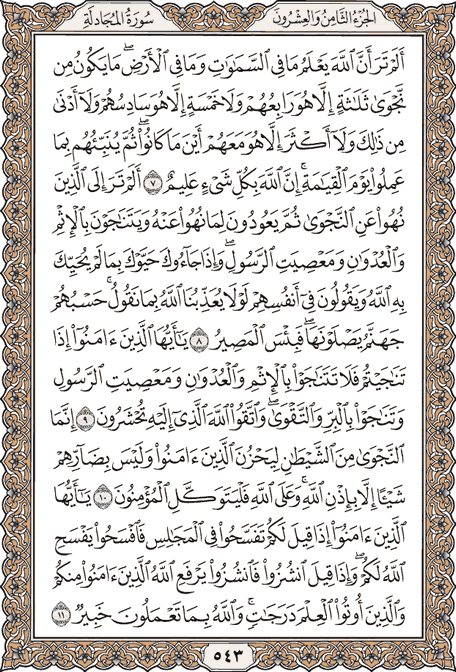 الجزء الثامن والعشرون سورة المجادلة
أَلَمْ تَرَ أَنَّ ٱللَّهَ يَعْلَمُ مَا فِى ٱلسَّمَٰوَٰتِ وَمَا فِى ٱلْأَرْضِ ۖ مَا يَكُونُ مِن
نَّجْوَىٰ ثَلَٰثَةٍ إِلَّا هُوَ رَابِعُهُمْ وَلَا خَمْسَةٍ إِلَّا هُوَ سَادِسُهُمْ وَلَآ أَدْنَىٰ
مِن ذَٰلِكَ وَلَآ أَكْثَرَ إِلَّا هُوَ مَعَهُمْ أَيْنَ مَا كَانُوا۟ ۖ ثُمَّ يُنَبِّئُهُم بِمَا
عَمِلُوا۟ يَوْمَ ٱلْقِيَٰمَةِ ۚ إِنَّ ٱللَّهَ بِكُلِّ شَىْءٍ عَلِيمٌ ٧ أَلَمْ تَرَ إِلَى ٱلَّذِينَ
نُهُوا۟ عَنِ ٱلنَّجْوَىٰ ثُمَّ يَعُودُونَ لِمَا نُهُوا۟ عَنْهُ وَيَتَنَٰجَوْنَ بِٱلْإِثْمِ
وَٱلْعُدْوَٰنِ وَمَعْصِيَتِ ٱلرَّسُولِ ۖ وَإِذَا جَآءُوكَ حَيَّوْكَ بِمَا لَمْ يُحَيِّكَ
بِهِ ٱللَّهُ وَيَقُولُونَ فِىٓ أَنفُسِهِمْ لَوْلَا يُعَذِّبُنَا ٱللَّهُ بِمَا نَقُولُ ۚ حَسْبُهُمْ
جَهَنَّمُ يَصْلَوْنَهَا ۖ فَبِئْسَ ٱلْمَصِيرُ ٨ يَٰٓأَيُّهَا ٱلَّذِينَ ءَامَنُوٓا۟ إِذَا
تَنَٰجَيْتُمْ فَلَا تَتَنَٰجَوْا۟ بِٱلْإِثْمِ وَٱلْعُدْوَٰنِ وَمَعْصِيَتِ ٱلرَّسُولِ
وَتَنَٰجَوْا۟ بِٱلْبِرِّ وَٱلتَّقْوَىٰ ۖ وَٱتَّقُوا۟ ٱللَّهَ ٱلَّذِىٓ إِلَيْهِ تُحْشَرُونَ ٩ إِنَّمَا
ٱلنَّجْوَىٰ مِنَ ٱلشَّيْطَٰنِ لِيَحْزُنَ ٱلَّذِينَ ءَامَنُوا۟ وَلَيْسَ بِضَآرِّهِمْ
شَيْـًٔا إِلَّا بِإِذْنِ ٱللَّهِ ۚ وَعَلَى ٱللَّهِ فَلْيَتَوَكَّلِ ٱلْمُؤْمِنُونَ ١٠ يَٰٓأَيُّهَا
ٱلَّذِينَ ءَامَنُوٓا۟ إِذَا قِيلَ لَكُمْ تَفَسَّحُوا۟ فِى ٱلْمَجَٰلِسِ فَٱفْسَحُوا۟ يَفْسَحِ
ٱللَّهُ لَكُمْ ۖ وَإِذَا قِيلَ ٱنشُزُوا۟ فَٱنشُزُوا۟ يَرْفَعِ ٱللَّهُ ٱلَّذِينَ ءَامَنُوا۟ مِنكُمْ
وَٱلَّذِينَ أُوتُوا۟ ٱلْعِلْمَ دَرَجَٰتٍ ۚ وَٱللَّهُ بِمَا تَعْمَلُونَ خَبِيرٌ ١١
٥٤٣